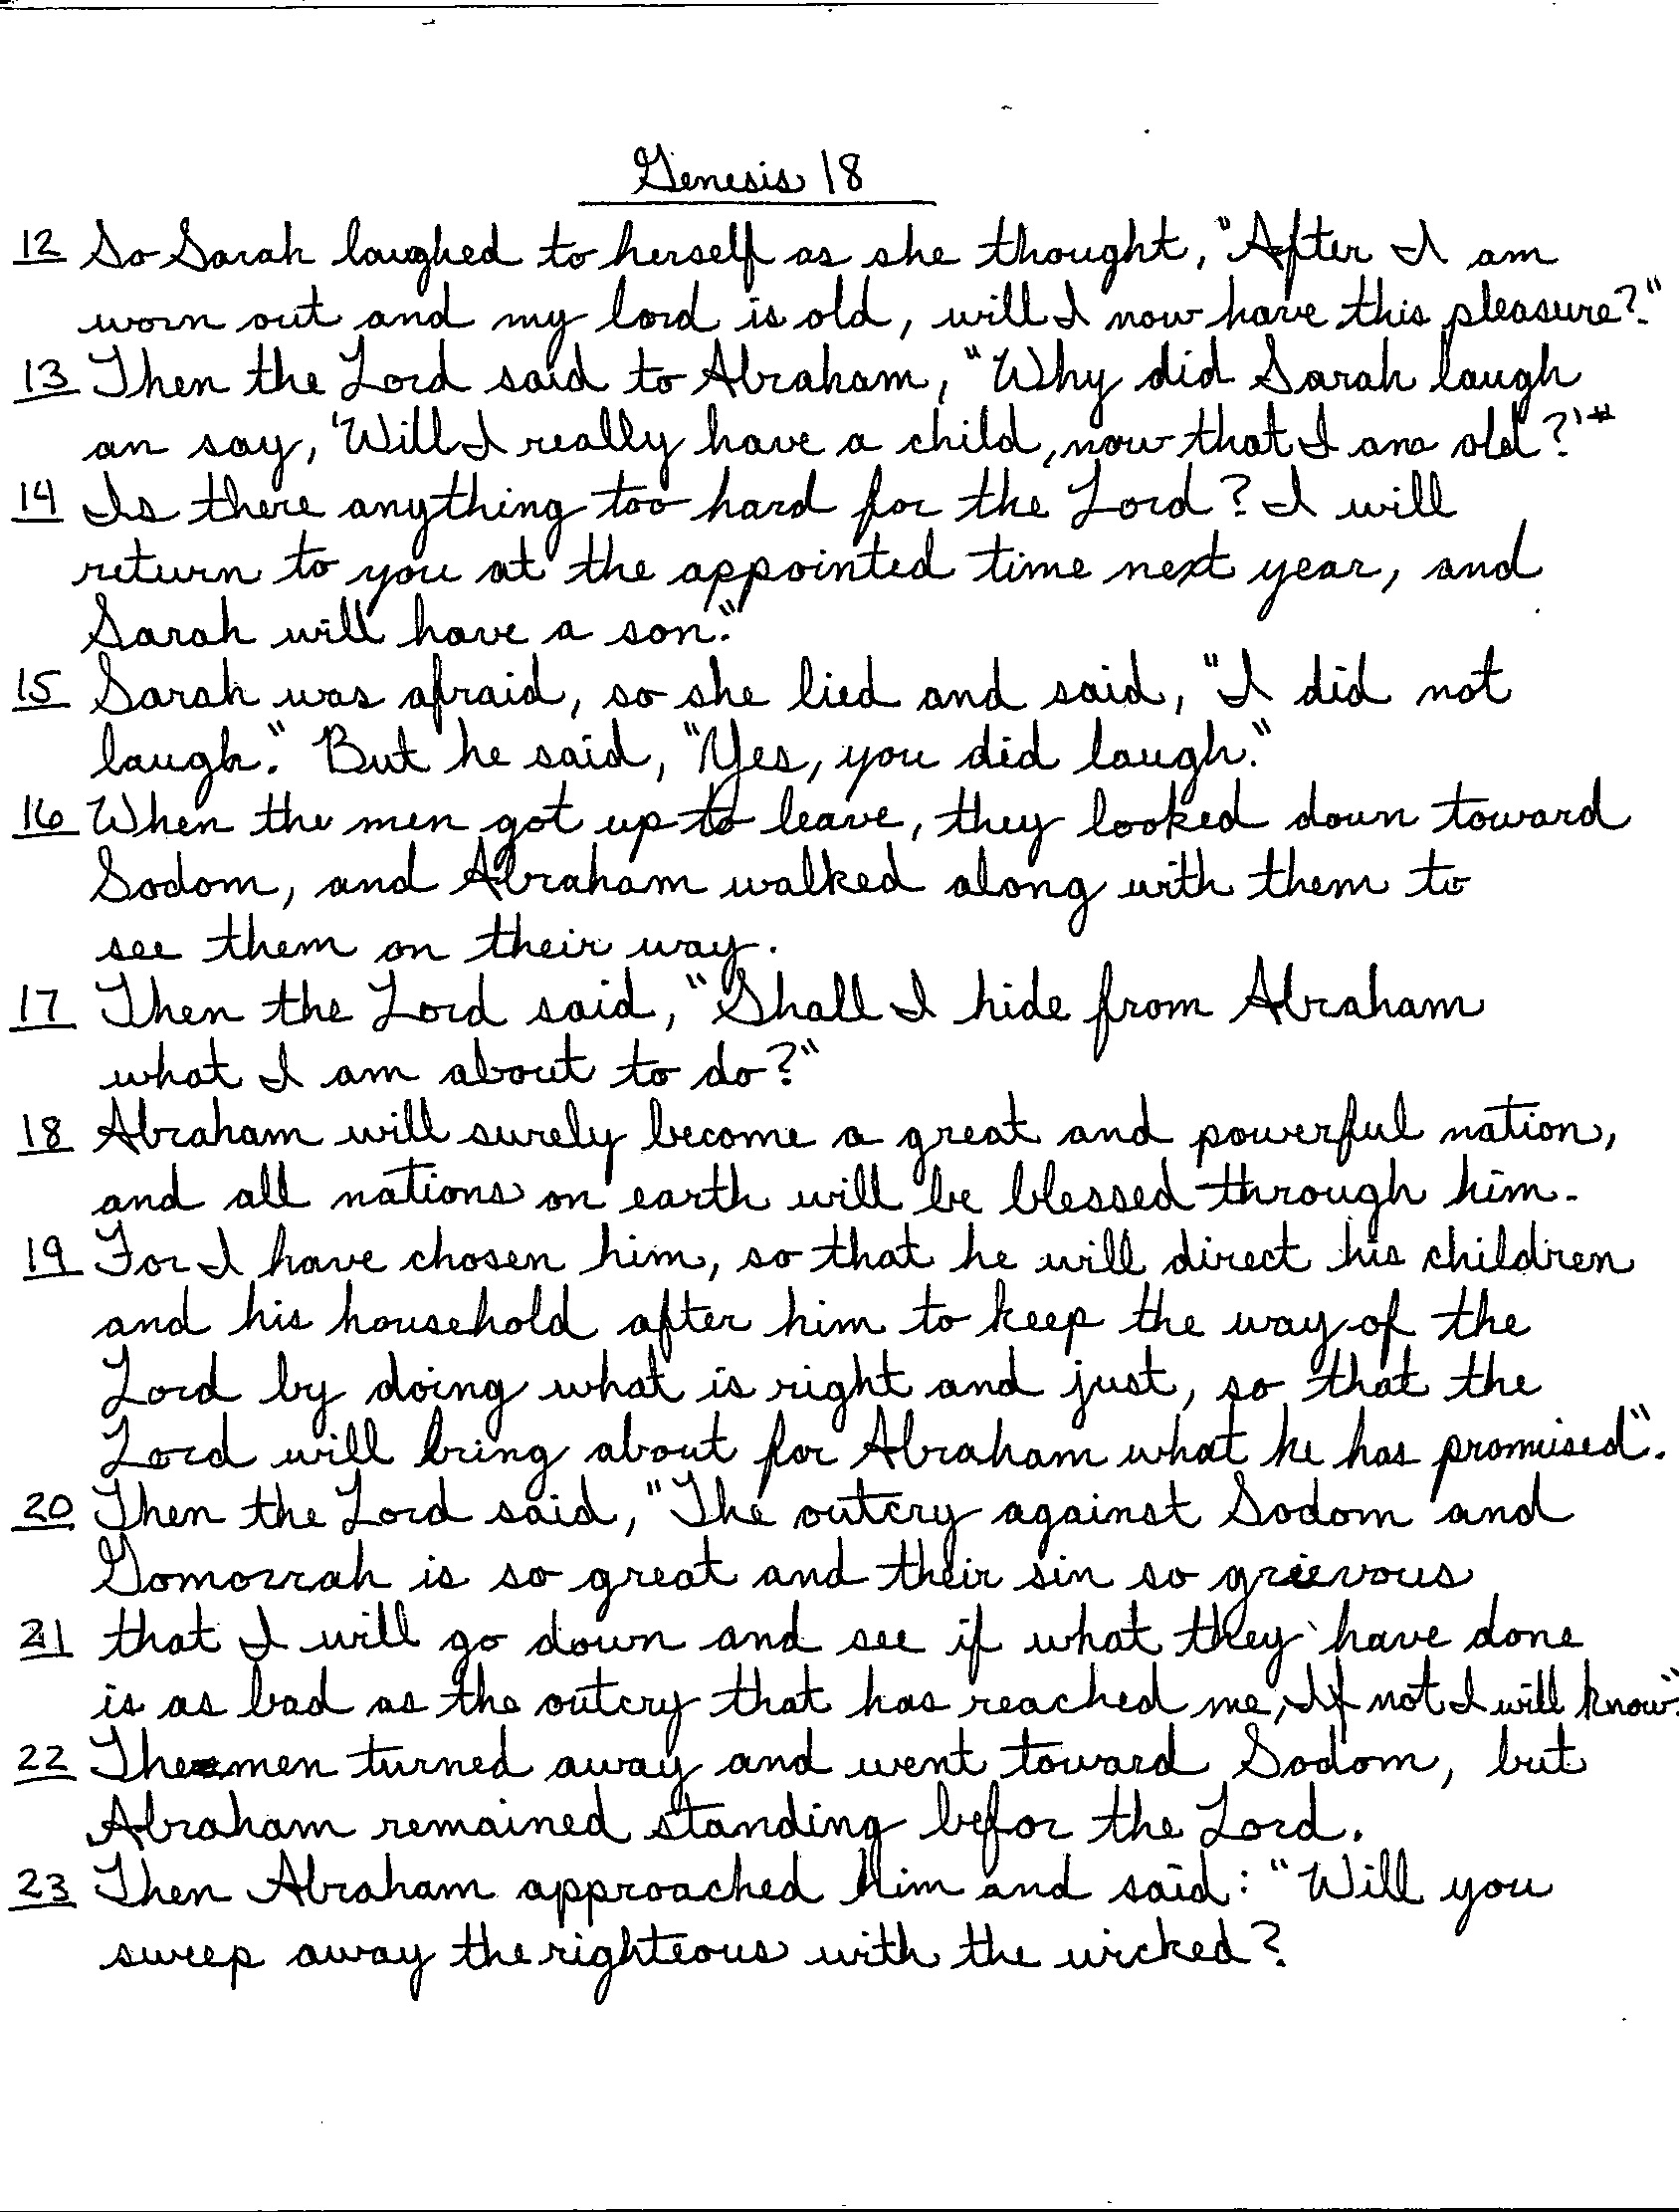 Genesis 18
12 So Sarah laughed to herself as she thought, "After I am
worn out and my lord is old, will I now have this pleasure?"
13 Then the Lord said to Abraham, "Why did Sarah laugh
an say, 'Will I really have a child, now that I am old?'"
14 Is there anything too hard for the Lord? I will
return to you at the appointed time next year, and
Sarah will have a son."
15 Sarah was afraid, so she lied and said, "I did not
laugh." But he said, "Yes, you did laugh."
16 When the men got up to leave, they looked down toward
Sodom, and Abraham walked along with them to
see them on their way.
17 Then the Lord said, "Shall I hide from Abraham
what I am about to do?"
18 Abraham will surely become a great and powerful nation,
and all nations on earth will be blessed through him.
19 For I have chosen him, so that he will direct his children
and his household after him to keep the way of the
Lord by doing what is right and just, so that the
Lord will bring about for Abraham what he has promised".
20 Then the Lord said, "The outcry against Sodom and
Gomorrah is so great and their sin so grievous
21 that I will go down and see if what they have done
is as bad as the outcry that has reached me, If not I will know".
22 The men turned away and went toward Sodom, but
Abraham remained standing befor the Lord.
23 Then Abraham approached him and said: "Will you
sweep away the righteous with the wicked?